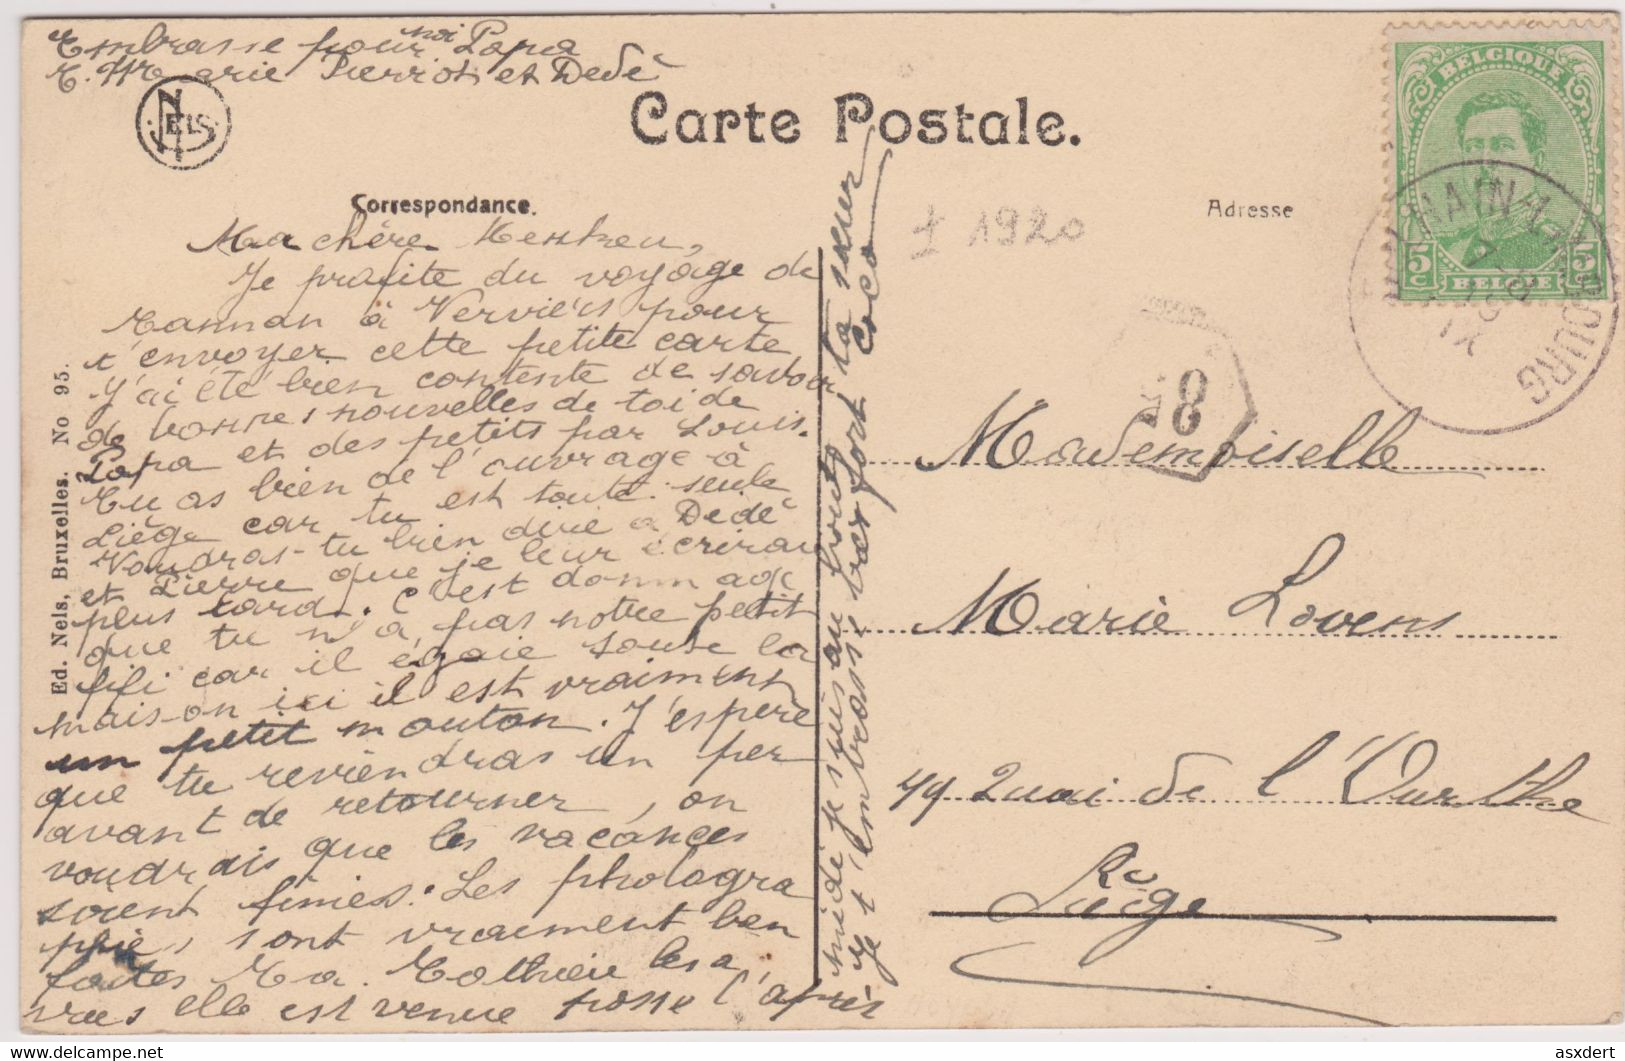 Embrasse pour moi Papa
T. Marie Pierrot et Dedé
NELS
Carte Postale.
Correspondance.
Adresse
± 1920
BELGIQUE
5 c
BELGIE
5 c
LIMBOURG
8
Ma chère
Je profite du voyage de
Maman à Verviers pour
t'envoyer cette petite carte
J'ai été bien contente de savoir
de bonnes nouvelles de toi de
Papa et des petits par Louis.
Tu as bien de l'ouvrage à
Liège car tu est toute seule
Voudras-tu bien dire a Dedé
et Pierre que je leur écrirai
plus tard. C'est dommage
que tu n'a pas notre petit
fifi car il égaie toute la
maison ici il est vraiment
un petit mouton. J'espère
que tu reviendras un per
avant de retourner, on
voudrais que les vacances
soient finies. Les photogra
phies sont vraiment bien
faites Ta. les a
vues elle est venue passe l'après
midi je suis au bout ta sœur
Je t'embrasse bien fort Coco
Mademoiselle
Marie Lovens
49 Quai de l'Ourthe
Liège
Ed. Nels, Bruxelles. No 95.
asxdert